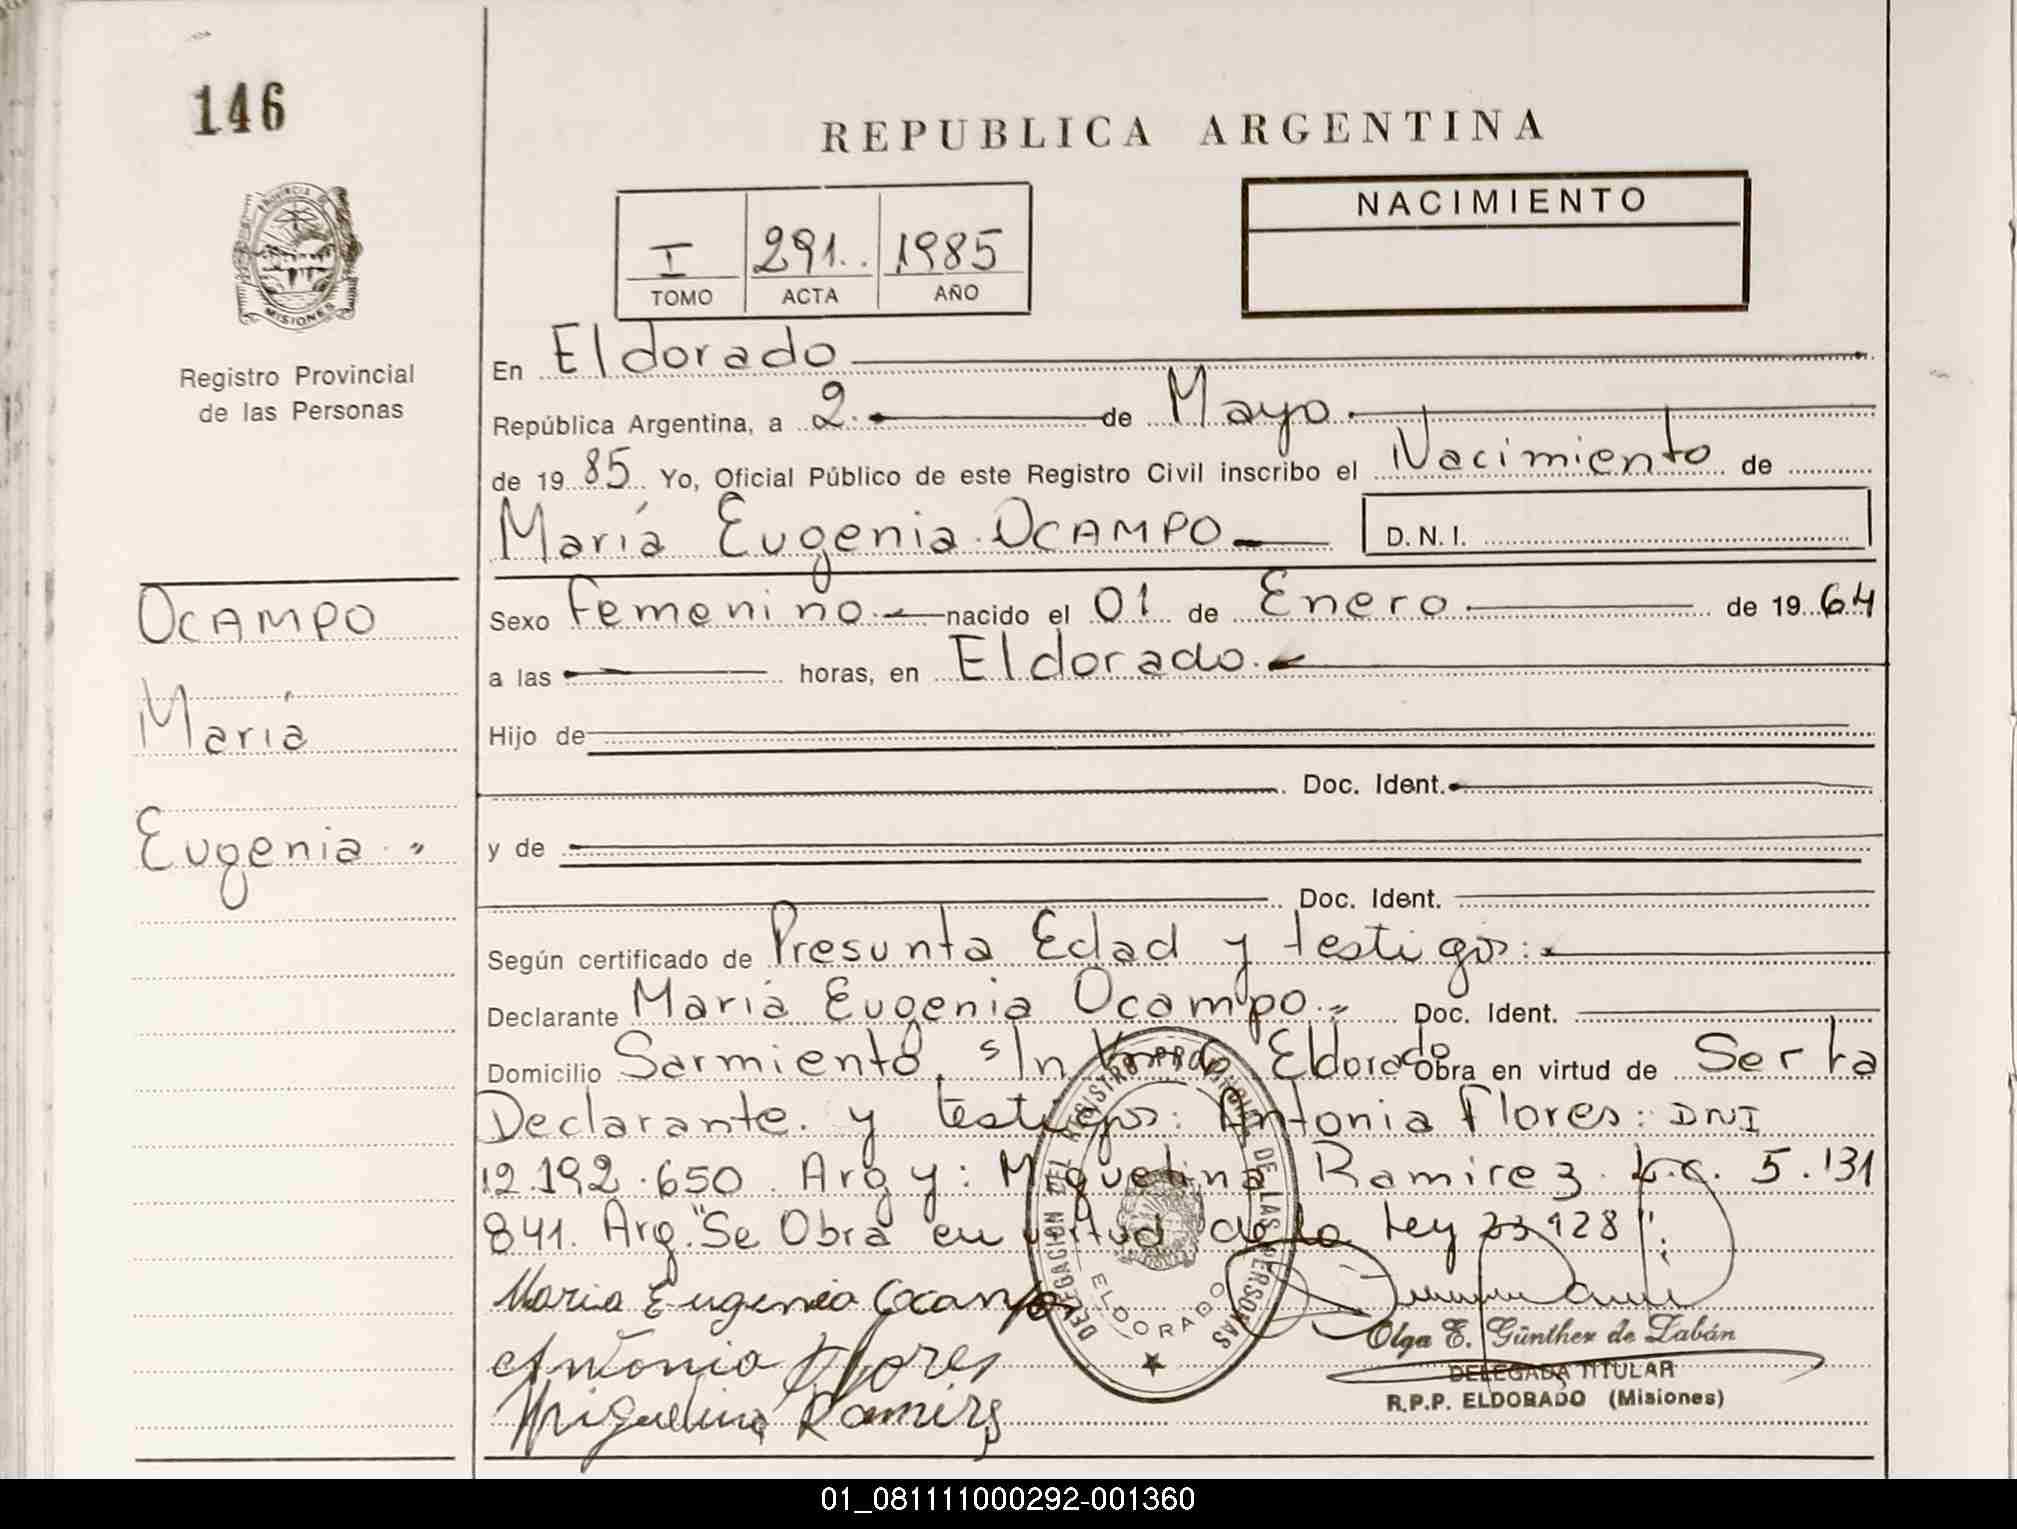 146
PROVINCIA DE
MISIONES
Registro Provincial
de las Personas
OCAMPO
María
Eugenia "
REPUBLICA ARGENTINA
I 291.. 1985
TOMO ACTA AÑO
NACIMIENTO
En Eldorado
República Argentina, a 2. de Mayo
de 19 85 Yo, Oficial Público de este Registro Civil inscribo el Nacimiento de
María Eugenia OCAMPO D.N.I.
Sexo Femenino nacido el 01 de Enero de 19 64
a las horas, en Eldorado.
Hijo de
Doc. Ident.
y de
Doc. Ident.
Según certificado de Presunta Edad y testigos:
Declarante María Eugenia Ocampo " Doc. Ident.
Domicilio Sarmiento s/n Eldorado Obra en virtud de Ser la
Declarante. y testigos: Antonia Flores: DNI
12.192.650. Arg y: Miguelina Ramirez. L.C. 5.131
841. Arg. "Se Obra en virtud de la Ley 23128"
Maria Eugenia Ocampo
Antonia Flores
Miguelina Ramires
DELEGACION DEL REGISTRO PROVINCIAL DE LAS PERSONAS
ELDORADO
Olga E. Günther de Labán
DELEGADA TITULAR
R.P.P. ELDORADO (Misiones)
01_081111000292-001360